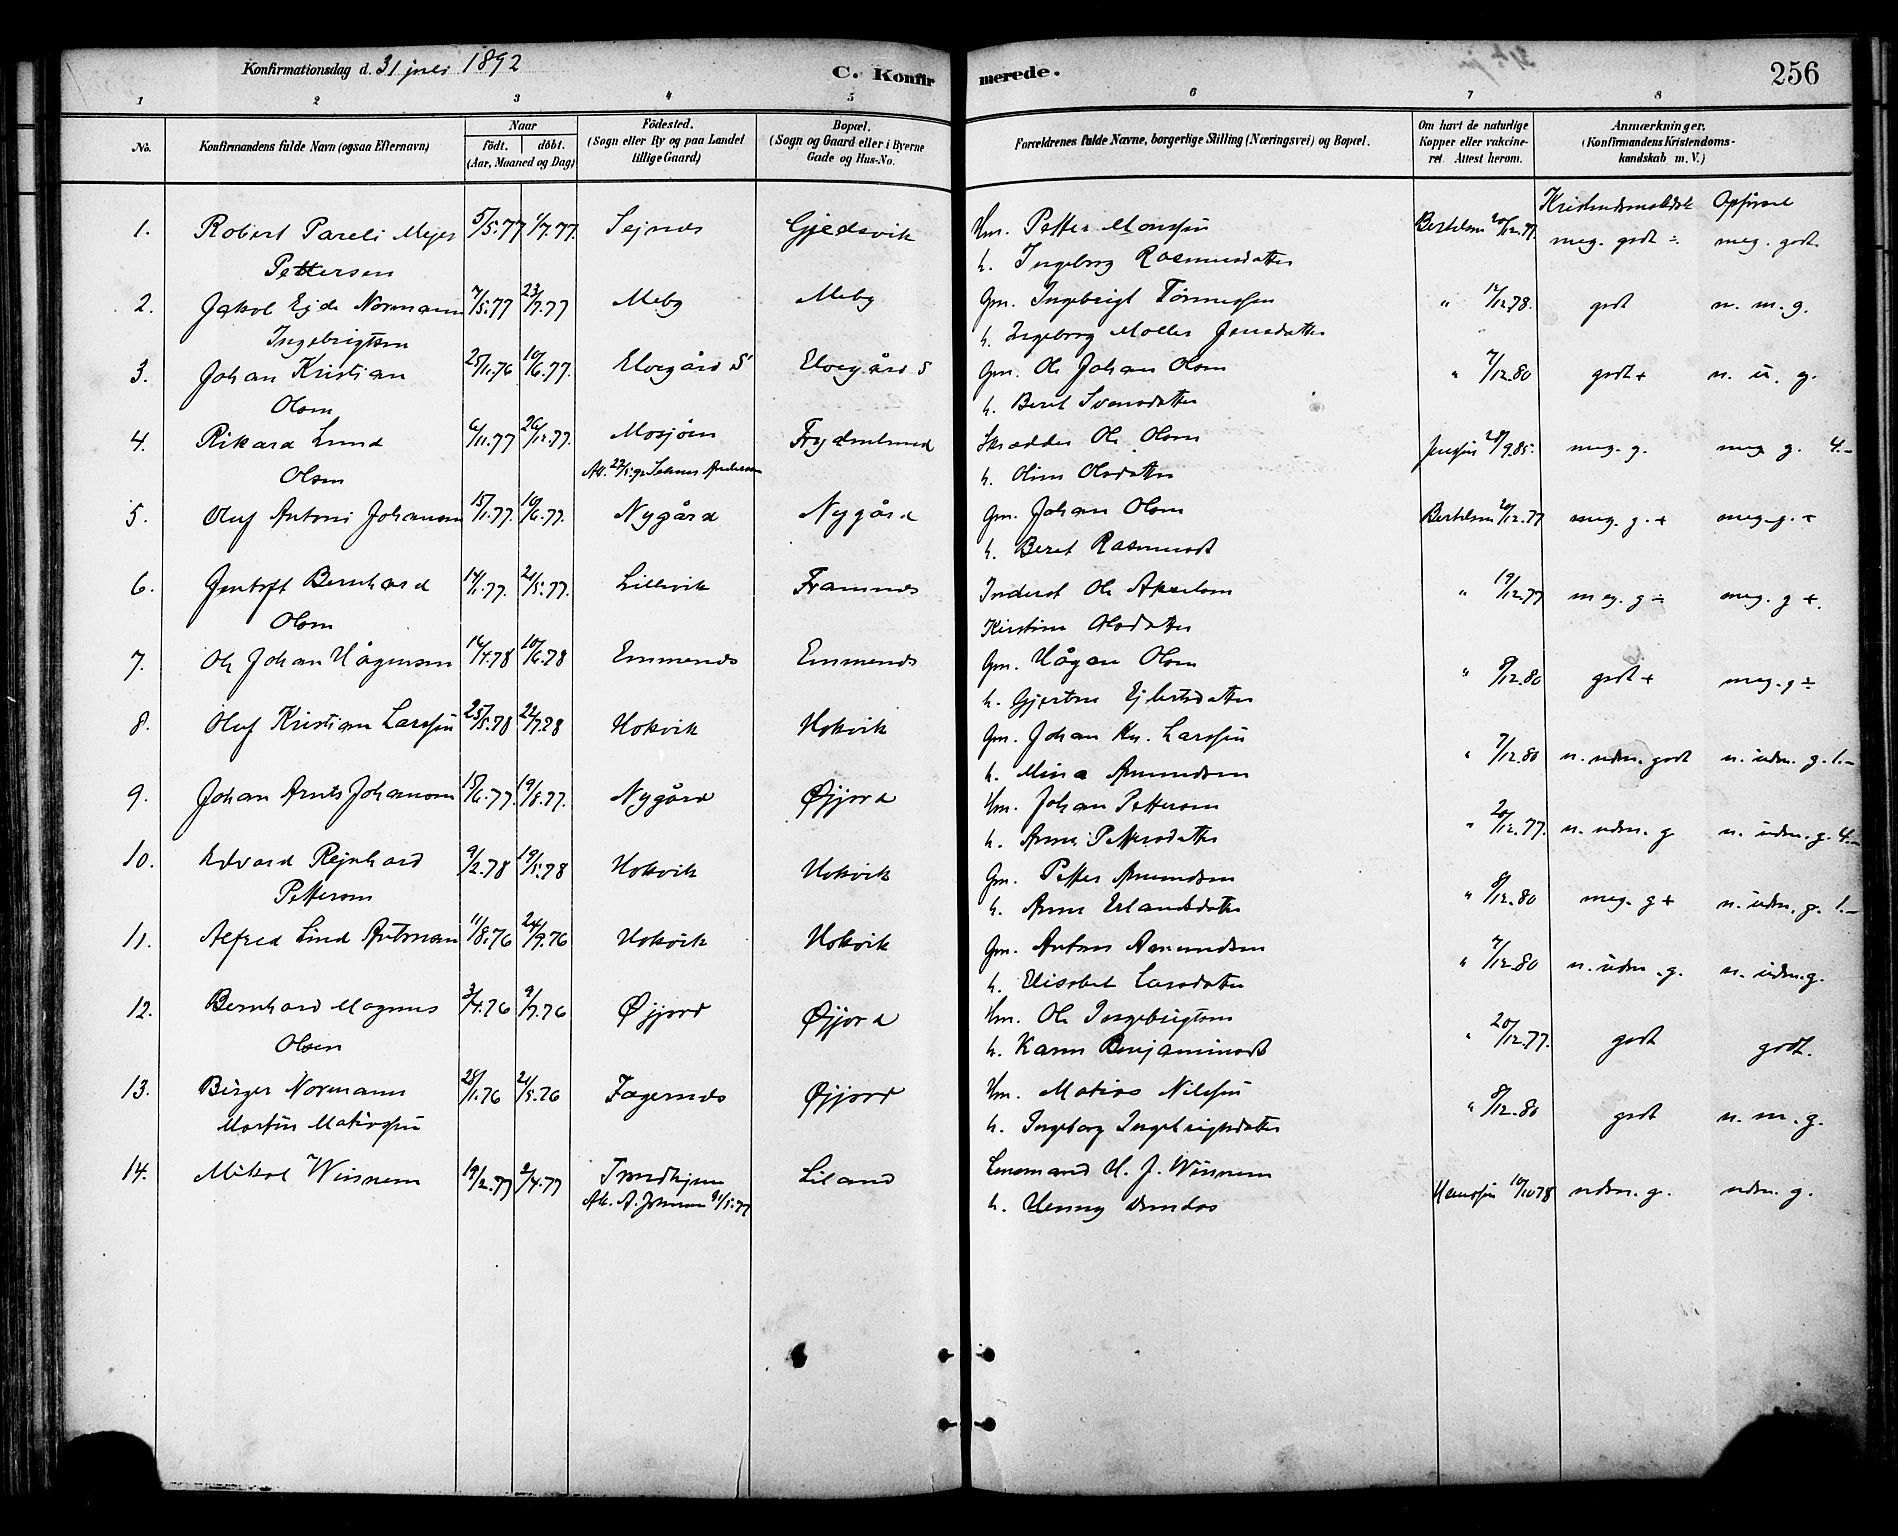 Konfirmationsdag d. 31 juli 1892
C. Konfirmerede.
256
1 2 3 4 5 6 7 8
No.
Konfirmandens fulde Navn (ogsaa Efternavn)
Naar
födt. döbt.
(Aar, Maaned og Dag)
Födested.
(Sogn eller By og paa Landet
tillige Gaard)
Bopæl.
(Sogn og Gaard eller i Byerne
Gade og Hus-No.
Forældrenes fulde Navne, borgerlige Stilling (Næringsvei) og Bopæl.
Om havt de naturlige
Kopper eller vakcine-
ret. Attest herom.
Anmærkninger.
(Konfirmandens Kristendoms-
kundskab m. V.)
Opförsel
1. Robert Pareli Mejer 5/5.77 1/7.77. Sejnes Gjedsvik Hm. Petter Monssen Bertelsen 20/12.77. meg. godt ÷ meg. godt.
Pettersen h. Ingeborg Rasmusdatter
2. Jakob Ejde Normann 7/5.77 23/7.77 Meby Meby Gm. Ingebrigt Tønnessen " 17/12.78. godt n. m. g.
Ingebrigtsen h. Ingeborg Jensdatter
3. Johan Kristian 25/11.76 10/6.77. Elvegård S Elvegård S Gm. Ole Johan Olsen " 7/12.80 godt + n. u. g.
Olsen h. Beret Svensdatter
4. Rikard Lund 6/11.77 26/12.77. Mosjøen Frydenlund Skrædder Ole Olsen Jenssen 28/9.85. meg. g. meg. g. 4.-
Olsen h. Oline Olsdatter
5. Oluf Antoni Johansen 15/1.77. 10/6.77. Nygård Nygård Gm. Johan Olsen Bertelsen 20/12.77 meg. g. + meg. g. +
h. Beret Rasmusdt
6. Jentoft Bernhard 14/1.77. 21/5.77. Lillevik Framnes Inderst Ole Akselsen " 19/12.77 meg. g ÷ meg. g +.
Olsen Kirstine Olsdatter
7. Ole Johan Hågensen 14/4.78 10/6.78 Emmenes Emmenes Gm. Hågan Olsen " 8/12.80 godt + meg. g ÷
h. Gjertine Ejlertsdatter
8. Oluf Kristian Larssen 25/5.78 22/7.78 Hokvik Hokvik Gm. Johan Kr. Larssen " 7/12.80 n. udm. godt n. udm. g. 1.-
h. Mina Amundsen
9. Johan Arnts Johansen 15/6.77. 19/8.77. Nygård Øjjord Hm. Johan Pettersen " 20/12.77. n. udm. g. n. udm. g. 4.-
h. Anne Pettersdatter
10. Edvard Rejnhard 9/2.78 19/5.78 Hokvik Hokvik Gm. Petter Amundsen " 8/12.80 meg. g + n. udm. g. 1.-
Pettersen h. Anne Erlandsdatter
11. Alfred Lind Antonsen 11/8.76 24/9.76 Hokvik Hokvik Gm. Anton Amundsen " 7/12.80 n. udm. g. n. udm. g.
h. Elisabet Larsdatter
12. Bernhard Magnus 3/4.76 9/7.76 Øjjord Øjjord Hm. Ole Ingebrigtsen " 20/12.77. godt godt.
Olsen h. Karen Benjaminsdt
13. Birger Normann 28/1.76 21/5.76 Fagernes Øjjord Hm. Matias Nilssen " 8/12.80 godt n. m. g.
Martin Matiassen h. Ingeborg Ingebrigtsdatter
14. Mikal Wisnem 19/2.77 2/4.77 Trondhjem Liland Lensmand H. J. Wisnem Hanssen 10/10 78 udm. g. udm. g.
h. Henny